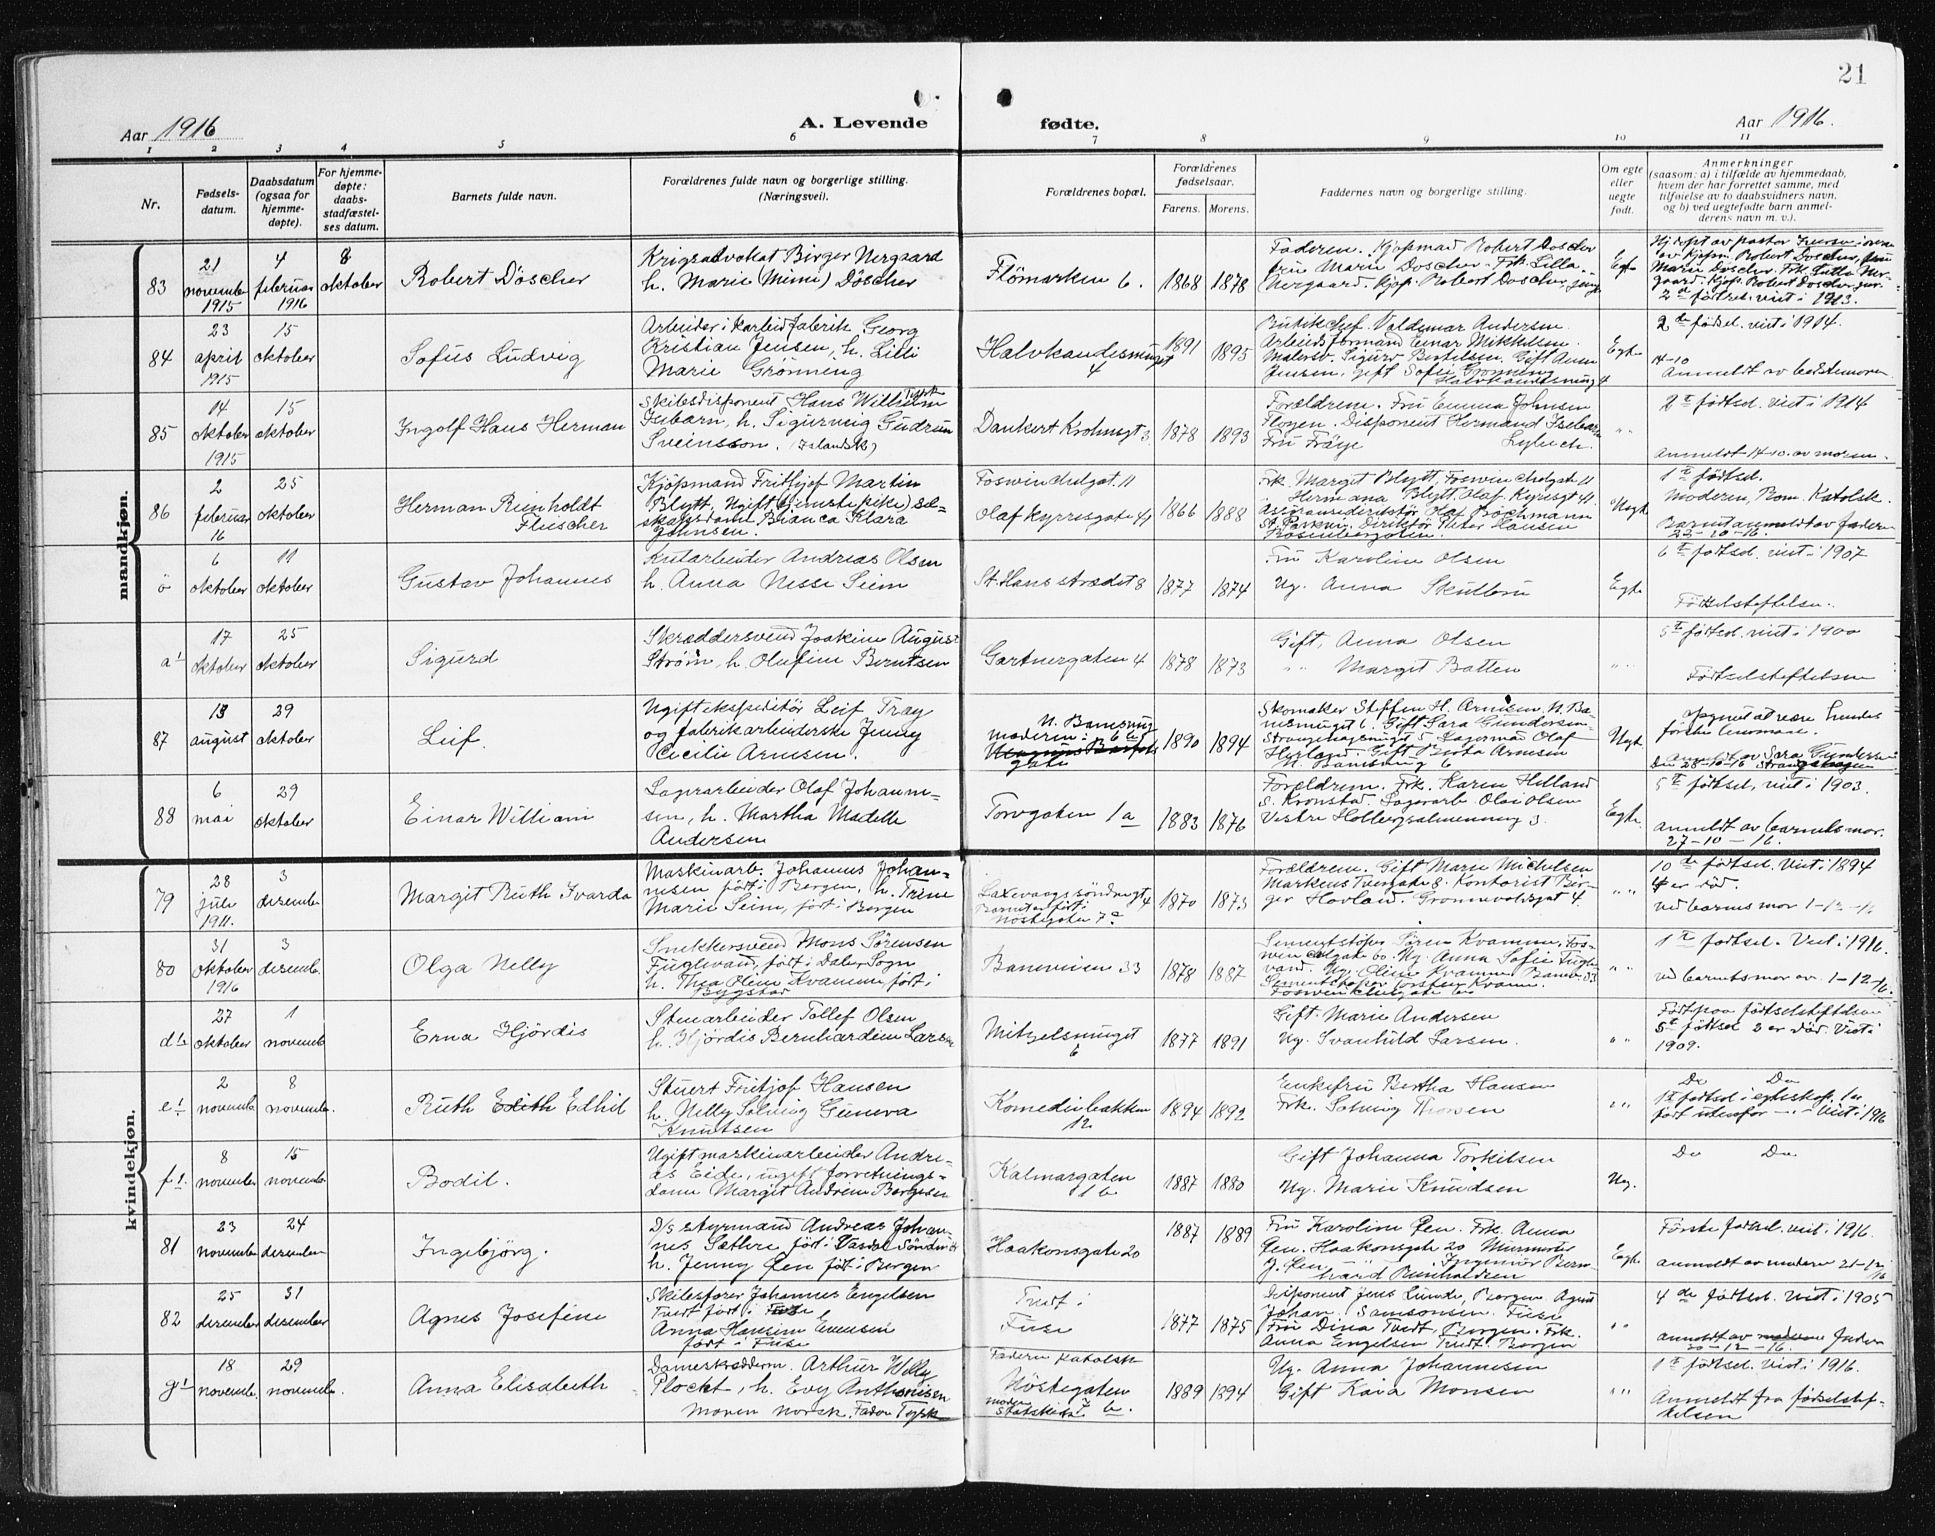 21
Aar 1916
A. Levende
fødte.
Aar 1916.
1 2 3 4 5 6 7 8 9 10 11
Nr.
Fødselsdatum.
Daabsdatum (ogsaa for hjemmedøpte).
For hjemmedøpte: daabsstadfæstelses datum.
Barnets fulde navn.
Forældrenes fulde navn og borgerlige stilling.
(Næringsvei).
Forældrenes bopæl.
Forældrenes fødselsaar.
Farens. Morens.
Faddernes navn og borgerlige stilling.
Om egte eller uegte født.
Anmerkninger
(saasom: a) i tilfælde av hjemmedaab,
hvem der har forrettet samme, med
tilføielse av to daabsvidners navn,
og b) ved uegtefødte barn anmel-
derens navn m. v.).
mandkjøn.
83
21 november 1915
4 februar 1916
8 oktober
Robert Döscher
Krigsadvokat Birger Nergaard
h. Marie (Mimi) Döscher
Flömarken 6.
1868 1878
Faderen. Kjøpmad Robert Doscher
fru Marie Doscher. Frk. Lilla
Nergaard. Kjøp. Robert Doscher jun.
Egte
2den fødsel. vist i 1903.
84
23 april 1915
15 oktober
Sofus Ludvig
Arbeider i karbidfabrik Georg
Kristian Jensen, h. Lilli
Marie Grönning
Halvkandesmuget 4
1891 1895
Butikchef Valdemar Andersen
Arbeidsformand Einar Mikkelsen
Malersv. Sigurd Bertelsen. Gift Anna
Jensen, Gift Sofie Grönning
Halvkandesmug 4
Egte
2den fødsel. vist i 1914.
14-10
Anmeldt av bedstemoren
85
14 oktober 1915
15 oktober
Ingolf Hans Herman
Skibsdisponent Hans Wilhelm Tysk
Isebarn, h. Sigurveig Gudrun
Sveinsson. (Islandsk)
Dankert Krohnsgt 3
1878 1893
Forældrene. Fru Emma Johnsen
Fløyen. Disponent Hermand Isebarn
Lybech.
" "
2den fødsel. vist i 1914
Anmeldt 14-10. av moren.
86
2 februar 16
25 oktober
Herman Reinholdt
Fleischer
Kjöpmand Fritjof Martin
Blytt. Ugift (tjenestepike) sel-
skapsdame Bianca Klara
Johnsen.
Foswinckelgat. 11
Olaf Kyrresgate 41
1866 1888
Frk. Margit Blytt, Foswinckelgate 11
Hermana Blytt Olaf Kyrresgt 41
Direktör Peter Hansen
Rosenbergsgaten.
Uegte
1ste fødsel.
Moderen, Rom. Katolsk
Barnet anmeldt av faderen
23-10-16.
ö
6 oktober
11 oktober
Gustav Johannes
Andreas Olsen
h. Anna Nesse Seim
St. Hans strædet 8
1877 1874
Fru Karoline Olsen
Ug. Anna Skulbru
Egte
6te fødsel. vist i 1907
Fødselstiftelsen.
a1
17 oktober
25 oktober
Sigurd
Skræddersvend Joakim August
Strøm, h. Olufine Berntsen
Gartnergaten 4
1878 1873
Gift, Anna Olsen
" Margit Batten
" "
5te fødsel. vist i 1900
Fødselstiftelsen
87
13 august
29 oktober
Leif.
Ugift ekspeditör Leif Tray
og fabrikarbeiderske Jenny
Cecilie Arnesen.
moderen:
gate
1890 1894
Skomaker Steffen H. Arnesen, N. Ba-
nesmuget 6. Gift Sara Gundersen
Strangehagensmuget 5. Lagermad Olaf
Hovland. Gift Berta Arnesen
N. Banesmug 6
Uegt.
opgivet at være hendes
første
Anmeldt av Sara Gundersen
Den 28-10-16 Strangehagen
88
6 mai
29 oktober
Einar William
Lagerarbeider Olaf Johann-
sen, h. Martha Madelle
Andersen
Torvgaten 1a
1883 1876
Forældrene. Frk. Karen Helland
S. Kronstad. Lagerarb. Olai Olsen
Vestre Holbergsalmenning 3.
Egte.
5te fødsel, vist i 1903.
anmeldt av barnets mor.
27-10-16.
kvindekjøn.
79
28 juli 1911.
3 desember
Margit Ruth Svarda
Maskinarb. Johannes Johan-
nesen født i Bergen, h. Trine
Marie Seim, født i Bergen
Laxevaag, söndregt 4
Barnet er født i
Nöstegaten 7a
1870 1873
Forældrene. Gift Marie Michelsen
Markens Tvergate 8. Kontorist Bir-
ger Hovland. Grønnevoldsgat 4.
" "
10de fødsel. Vist i 1894
4 er död.
ved barnets mor 1-12-16
80
31 oktober 1916
3 desemb.
Olga Nelly
Snekkersvend Mons Sørensen
Fuglevand, født i Dale Sogn
h. Thea Oline Kvamme, født i
Bygstad
Baneveien 33
1878 1887
Sementstøper Søren Kvamme, Fos-
winckelgate 60. Ug. Anna Sofie Fugle-
vand. Ug. Oline Kvamme Banev. 33
Sementstøper Torsten Kvamme.
Foswinckelgate 60
" "
1ste fødsel. Vist i 1916.
ved barnets mor av. 1-12-16.
d1
27 oktober
1 novemb
Erna Hjördis
Stenarbeider Tollef Olsen
h. Hjördis Bernhardine Larsen
Mitzelsmuget 6
1877 1891
Gift Marie Andersen
Ug. Svanhild Larsen.
" "
Født paa fødselstiftelsen
5te fødsel 2 er død. Vist i
1909.
e1
2 novemb.
8 novemb.
Ruth Edith Edhil
Stuert Fritjof Hansen
h. Nelly Solveig Guneva
Knutsen
Komediebakken
12
1894 1892
Enkefru Bertha Hansen
Frk. Solveig Thorsen
" "
Do Do
1ste fødsel i egteskap. 1 er
født utenfor — Vist i 1916
f1.
8 november
15 novemb.
Bodil.
Ugift maskinarbeider Andre-
as Eide, ugift forretnings-
dame Margit Andrine Børgesen
Kalmargaten
1b
1887 1880
Gift Johanna Torkilsen
Ug. Marie Knudsen
Ug.
Do Do
81
23 november
24 desember
Ingebjörg.
D/s styrmand Andreas Johan-
nes Sæthre født i Vardal Söndmör
h. Jenny Øen født i Bergen
Haakonsgate 20
1887 1889
Fru Karoline Øen. Frk. Anna
Øen. Haakonsgate 20 Murmester
J. Øen — " — Ingeniör Bern-
hard Reinholdsen
Egte
Første fødsel. vist i 1916.
anmeldt av moderen 21-12-16
82
25 desember
31 desember
Agnes Josefine
Skibsfører Johannes Engelsen
Tvedt født i Fuse
Anna Hansine Evensen
født i Fuse
Tvedt i
Fuse
1877 1875
Disponent Jens Lunde, Bergen. Agent
Johan Samsonsen. Fuse
Fru Dina Tvedt, Bergen. Frk.
Anna Engelsen Tvedt. Bergen
" "
4de fødsel. Vist i 1905
anmeldt av moderen faderen
30-12-16.
g1
18 novemb.
29 novemb.
Anna Elisabeth
Dameskrædderm. Arthur Willy
Plockt, h. Evy Anthonisen
Moren norsk. Fader Tysk
Faderen Katolsk
Nöstegaten
7b.
moder
statskirke
1889 1894
Ug. Anna Johannesen
Gift Kaia Monsen
" "
1ste fødsel. Vist i 1916.
Anmeldt fra fødselstif-
telsen